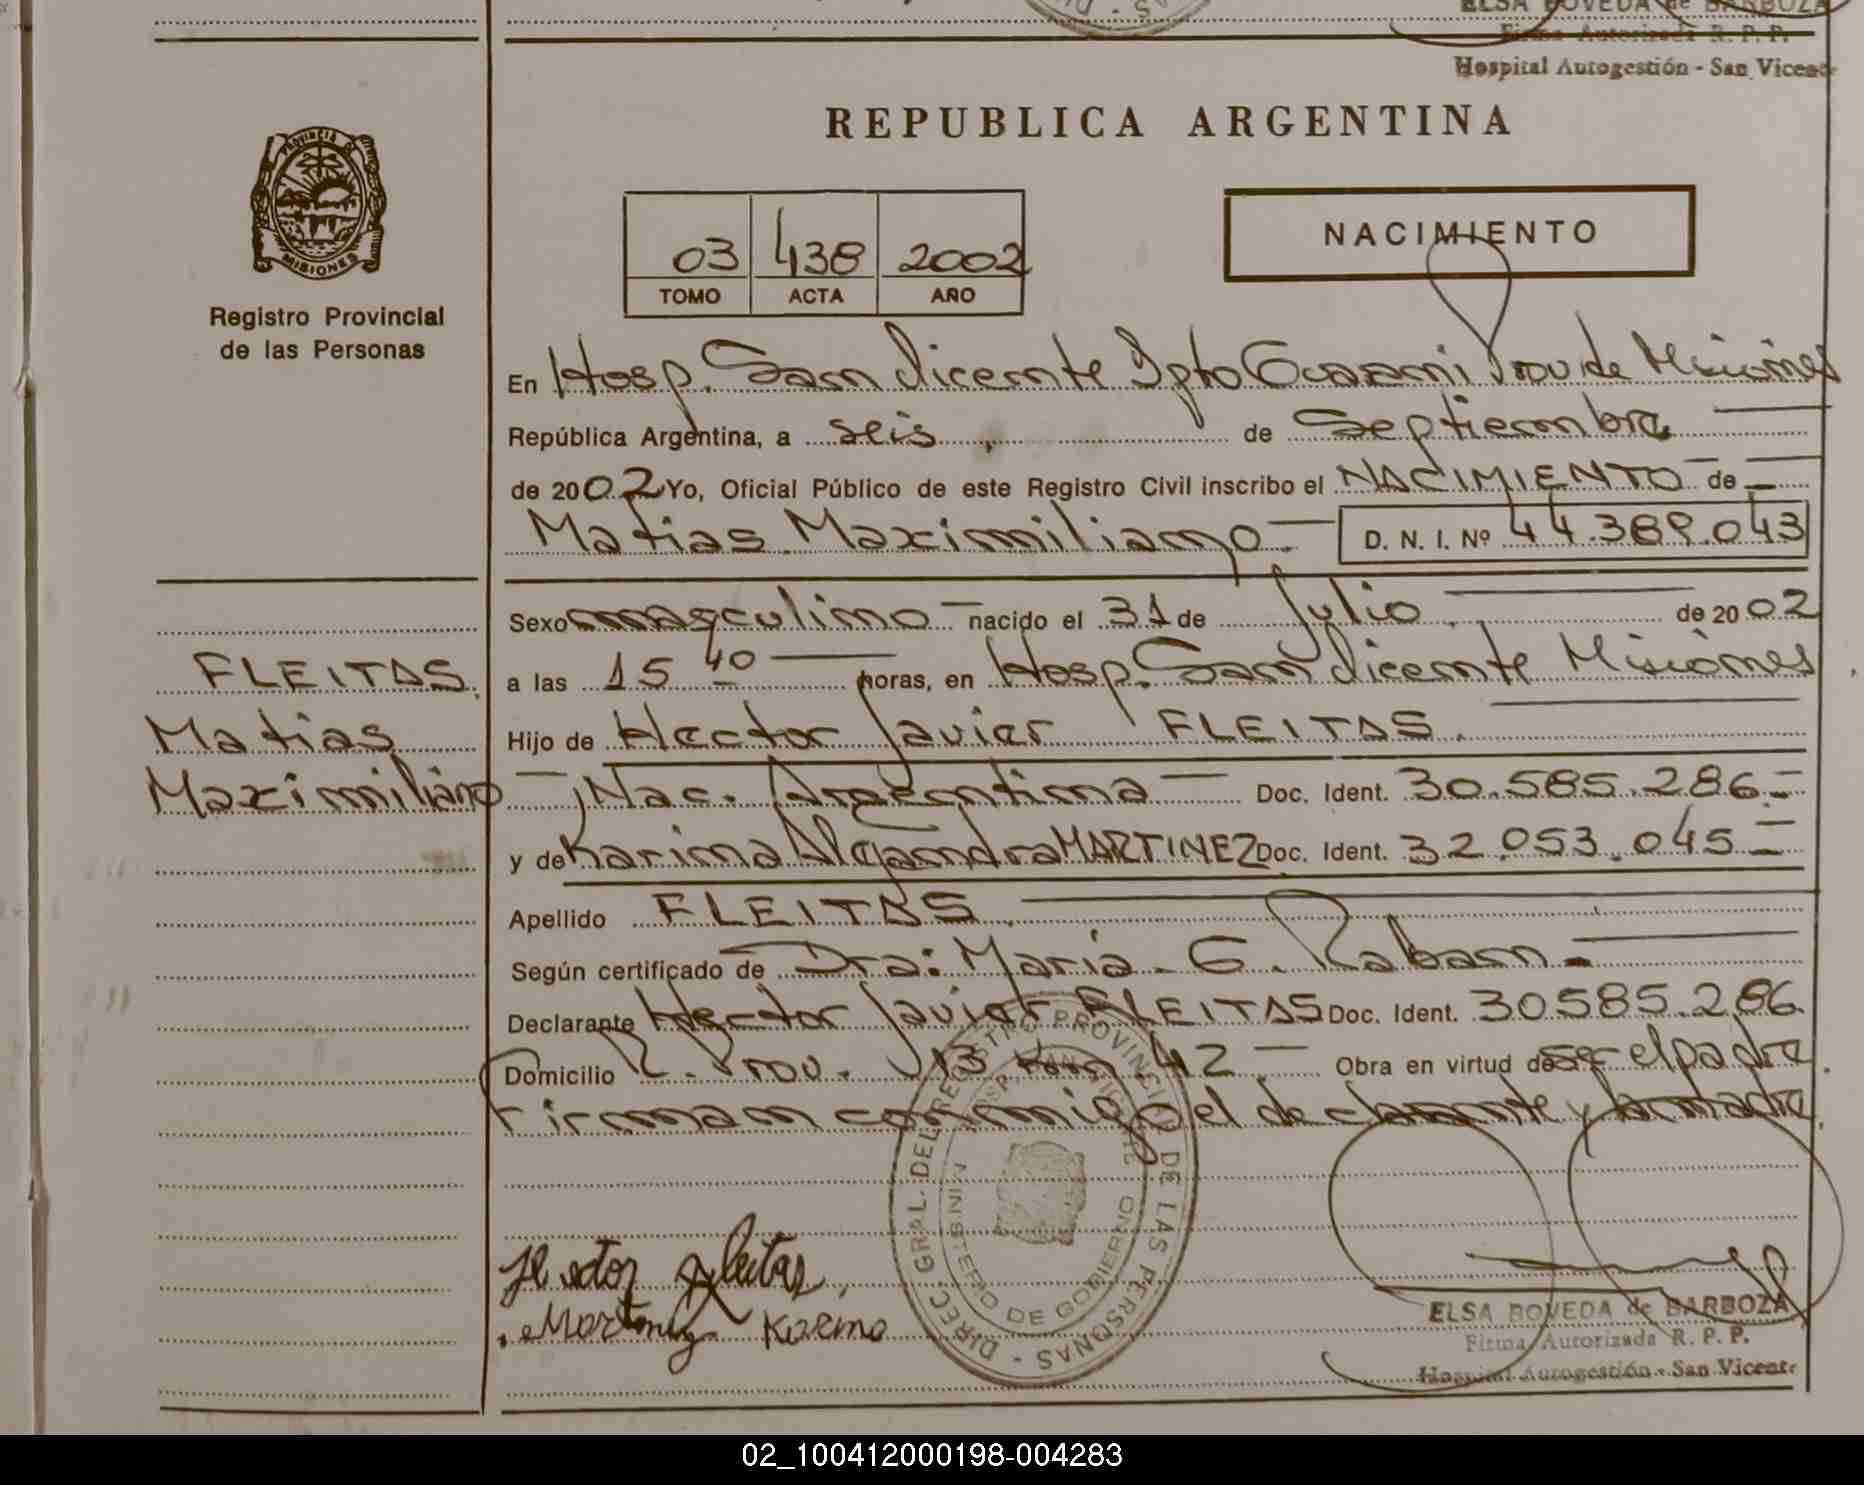 ELSA BOVEDA de BARBOZA
Firma Autorizada R. P. P.
Hospital Autogestión - San Vicente
REPUBLICA ARGENTINA
PROVINCIA DE
MISIONES
Registro Provincial
de las Personas
03 438 2002
TOMO ACTA AÑO
NACIMIENTO
En Hosp. San Vicente Dpto Guarani Prov de Misiones
República Argentina, a seis de Septiembre
de 2002 Yo, Oficial Público de este Registro Civil inscribo el NACIMIENTO de
Matias Maximiliano D. N. I. Nº 44.389.043
Sexo masculino nacido el 31 de Julio de 2002
a las 15 40 horas, en Hosp. San Vicente Misiones
Hijo de Hector Javier FLEITAS
Nac. Argentina Doc. Ident. 30.585.286
y de Karina Alejandra MARTINEZ Doc. Ident. 32.053.045
Apellido FLEITAS
Según certificado de Dra: Maria G.
Declarante Hector Javier FLEITAS Doc. Ident. 30585.286.
Domicilio R. Prov. 13 Km. 42 Obra en virtud de ser el padre.
Firman conmigo el declarante y la madre.
FLEITAS
Matias
Maximiliano
DIREC. GRAL. DEL REGISTRO PROVINCIAL DE LAS PERSONAS
HOSP. SAN VICENTE
MINISTERIO DE GOBIERNO
Hector Fleitas
Martinez Karina
ELSA BOVEDA de BARBOZA
Firma Autorizada R. P. P.
Hospital Autogestión - San Vicente
02_100412000198-004283